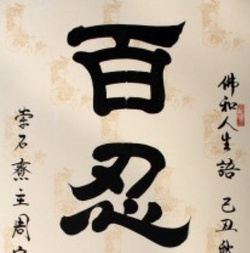 百忍
佛和人生語 己丑秋
崇石齋主周